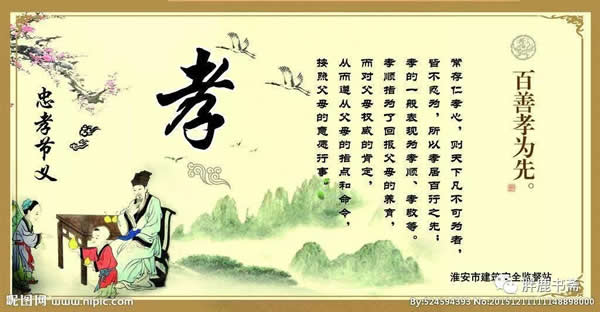 百善孝为先。
常存仁孝心,则天下凡不可为者,
皆不忍为,所以孝居百行之先;
孝的一般表现为孝顺、孝敬等。
孝顺指为了回报父母的养育,
而对父母权威的肯定,
从而遵从父母的指点和命令,
按照父母的意愿行事。
孝
忠孝节义
淮安市建筑安全监督站
胖鹿书斋
昵图网 www.nipic.com
By:524594393 No:20151211111148898000